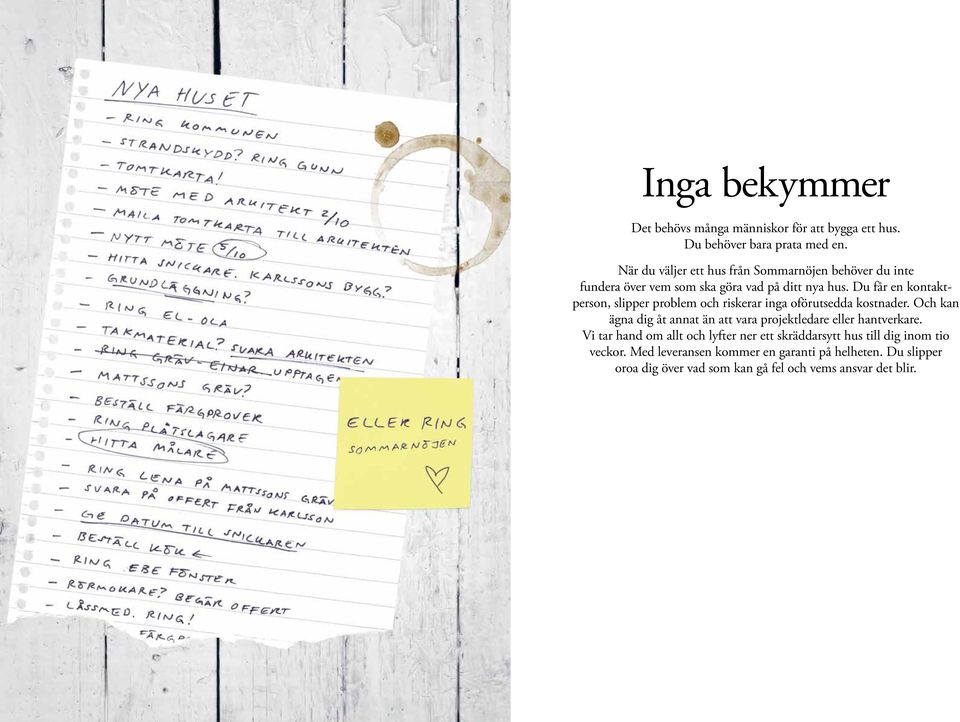 NYA HUSET
- RING KOMMUNEN
- STRANDSKYDD? RING GUNN
- TOMTKARTA!
- MÖTE MED ARKITEKT 2/10
- MAILA TOMTKARTA TILL ARKITEKTEN
- NYTT MÖTE 5/10
- HITTA SNICKARE. KARLSSONS BYGG?
- GRUNDLÄGGNING?
- RING EL-OLA
- TAKMATERIAL? SVARA ARKITEKTEN
- RING GRÄV-EINAR UPPTAGEN
- MATTSSONS GRÄV?
- BESTÄLL FÄRGPROVER
- RING PLÅTSLAGARE
- HITTA MÅLARE
- RING LENA PÅ MATTSSONS GRÄV
- SVARA PÅ OFFERT FRÅN KARLSSON
- GE DATUM TILL SNICKAREN
- BESTÄLL KÖK ←
- RING EBE FÖNSTER
- RÖRMOKARE? BEGÄR OFFERT
- LÅSSMED. RING!
FÄRGP
ELLER RING
SOMMARNÖJEN
Inga bekymmer
Det behövs många människor för att bygga ett hus.
Du behöver bara prata med en.
När du väljer ett hus från Sommarnöjen behöver du inte
fundera över vem som ska göra vad på ditt nya hus. Du får en kontakt-
person, slipper problem och riskerar inga oförutsedda kostnader. Och kan
ägna dig åt annat än att vara projektledare eller hantverkare.
Vi tar hand om allt och lyfter ner ett skräddarsytt hus till dig inom tio
veckor. Med leveransen kommer en garanti på helheten. Du slipper
oroa dig över vad som kan gå fel och vems ansvar det blir.